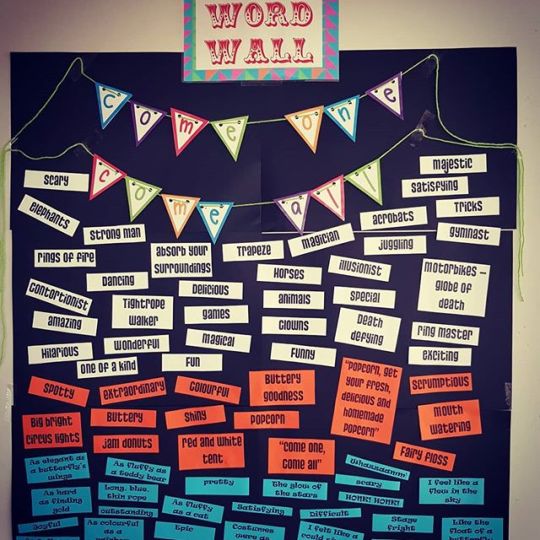 WORD
WALL
come one
come all
majestic
scary
satisfying
elephants
Tricks
acrobats
strong man
magician
gymnast
rings of fire
absorb your
surroundings
Trapeze
juggling
Dancing
Horses
illusionist
Motorbikes –
globe of
death
contortionist
Delicious
animals
special
Tightrope
walker
games
amazing
clowns
Death
defying
ring master
wonderful
magical
Hilarious
one of a kind
fun
funny
exciting
spotty
extraordinary
colourful
Buttery
goodness
"popcorn, get
your fresh,
delicious and
homemade
popcorn"
scrumptious
Big bright
circus lights
Buttery
shiny
popcorn
mouth
watering
jam donuts
Red and white
tent
"come one,
come all"
Fairy floss
As elegant as
a butterfly's
wings
As fluffy as
a teddy bear
pretty
The glow of
the stars
scary
I feel like a
flow in the
sky
As hard as
finding
gold
Long, blue,
thin ropes
As fluffy
as a cat
satisfying
HONK! HONK!
outstanding
Difficult
Joyful
As colourful
as a
Epic
Costumes
were as
I felt like a
Stage
fright
Like the
float of a